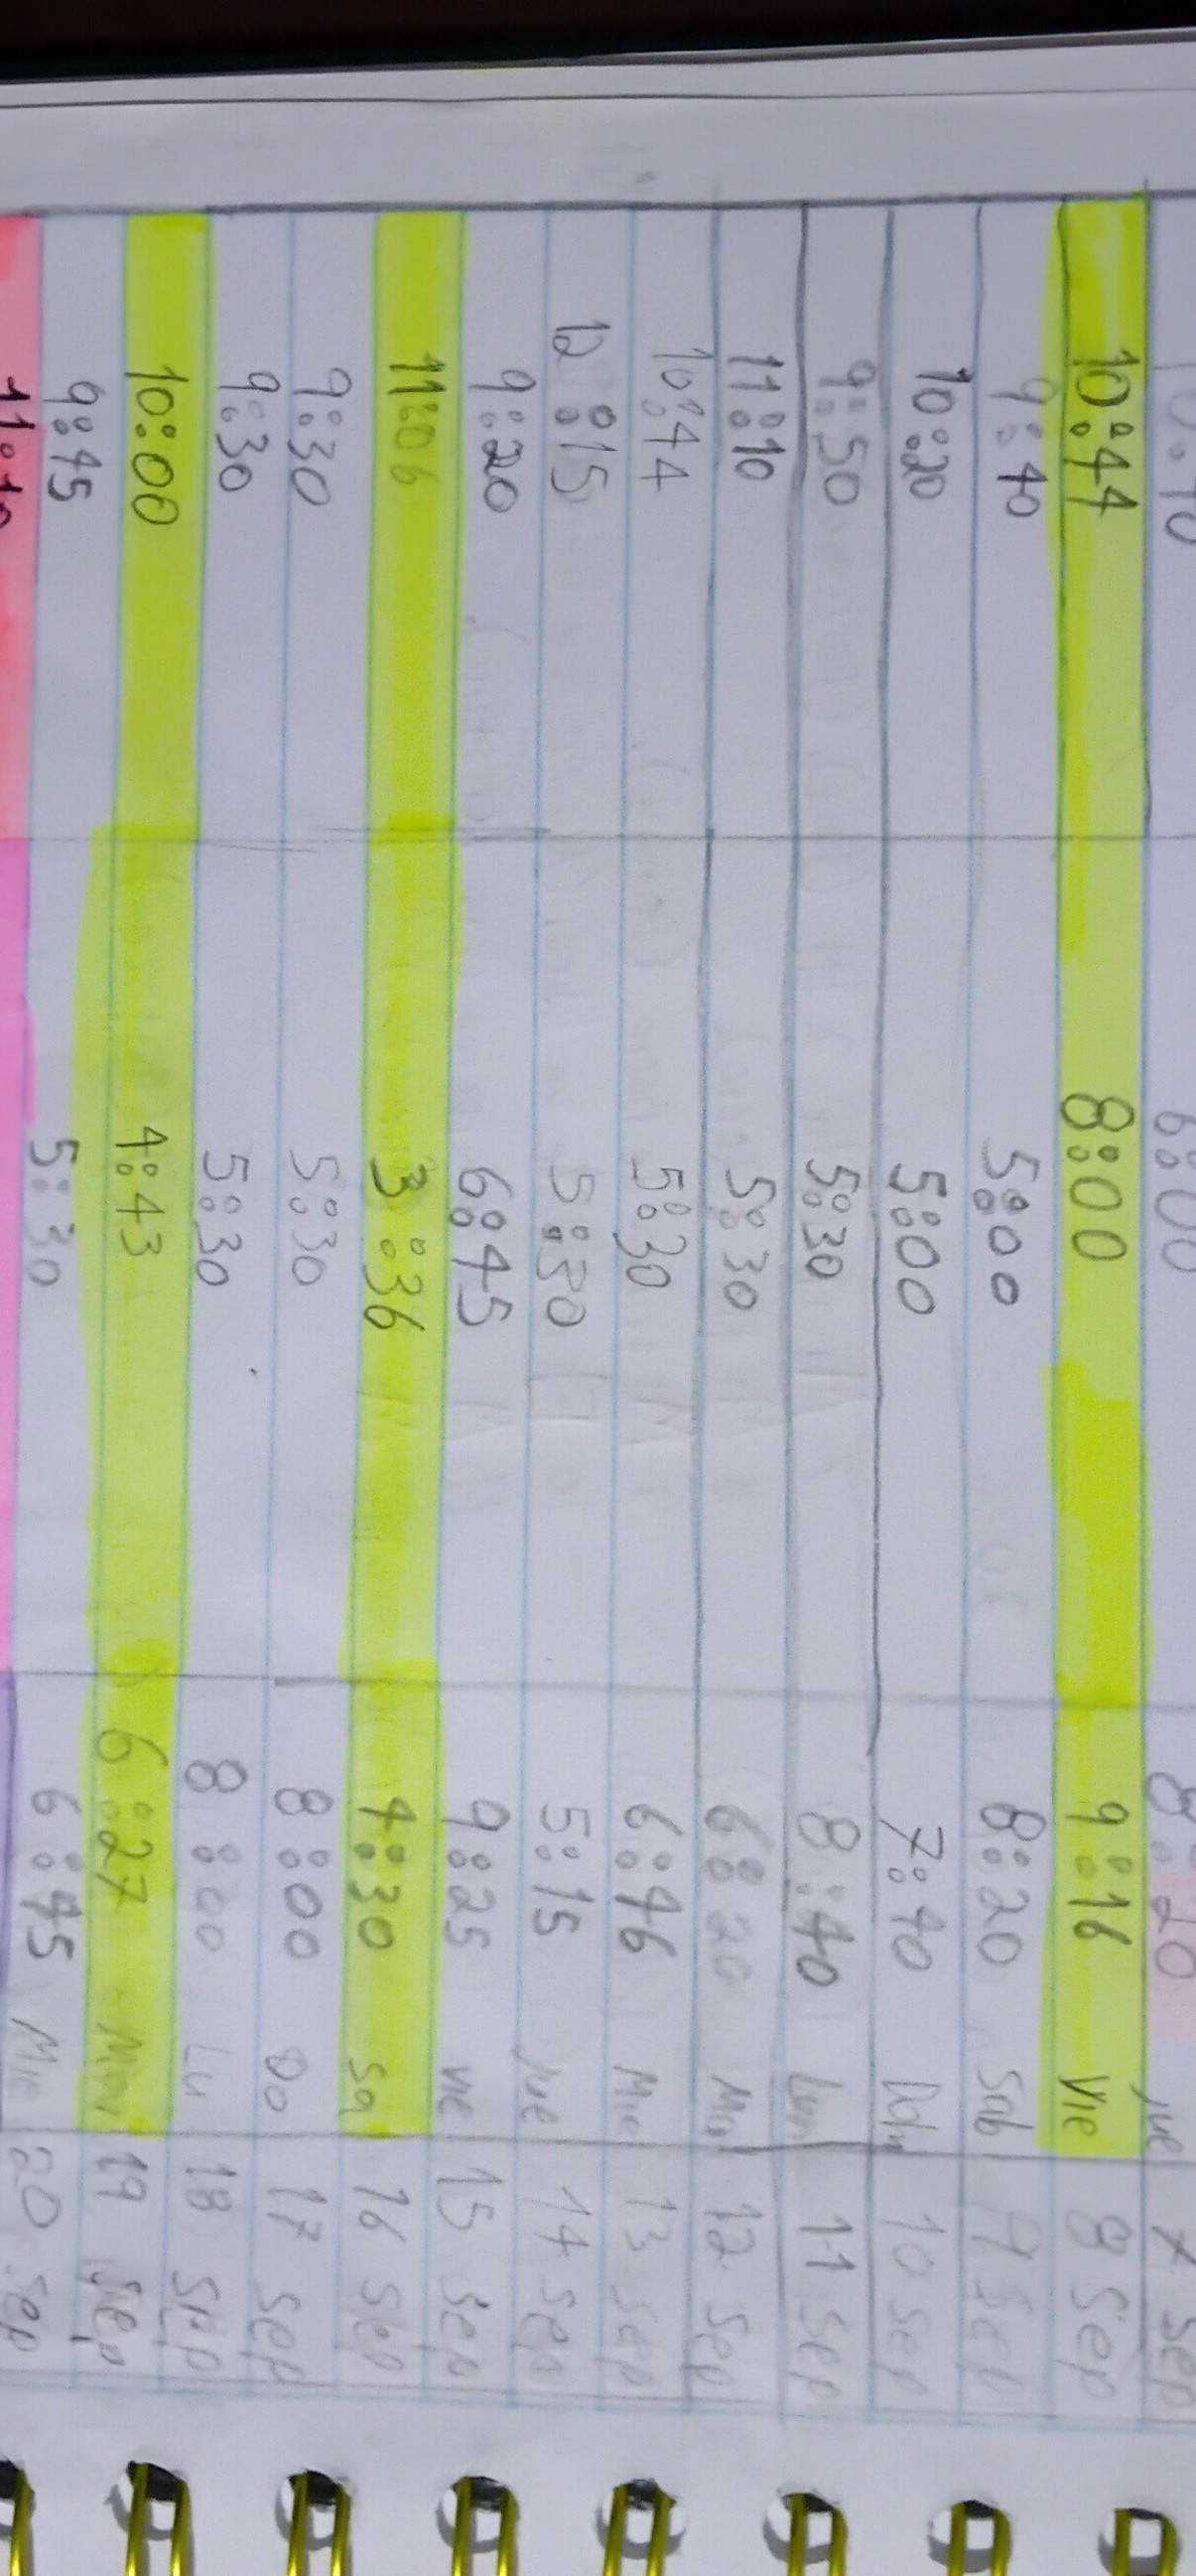 6:00 8:20 Jue 7 Sep
10:44 8:00 9:16 Vie 8 Sep
9:40 5:00 8:20 Sab 9 Sep
10:20 5:00 7:40 10 sep
9:50 5:30 8:40 Lun 11 Sep
11:10 5:30 6:20 Mar 12 Sep
10:44 5:30 6:46 Mie 13 sep
12:15 5:30 5:15 Jue 14 sep
9:20 6:45 9:25 Vie 15 Sep
11:06 3:36 4:30 Sa 16 Sep
9:30 5:30 8:00 Do 17 Sep
9:30 5:30 8:00 Lu 18 Sep
10:00 4:43 6:27 Mar 19 Sep
9:45 5:30 6:45 Mie 20 Sep